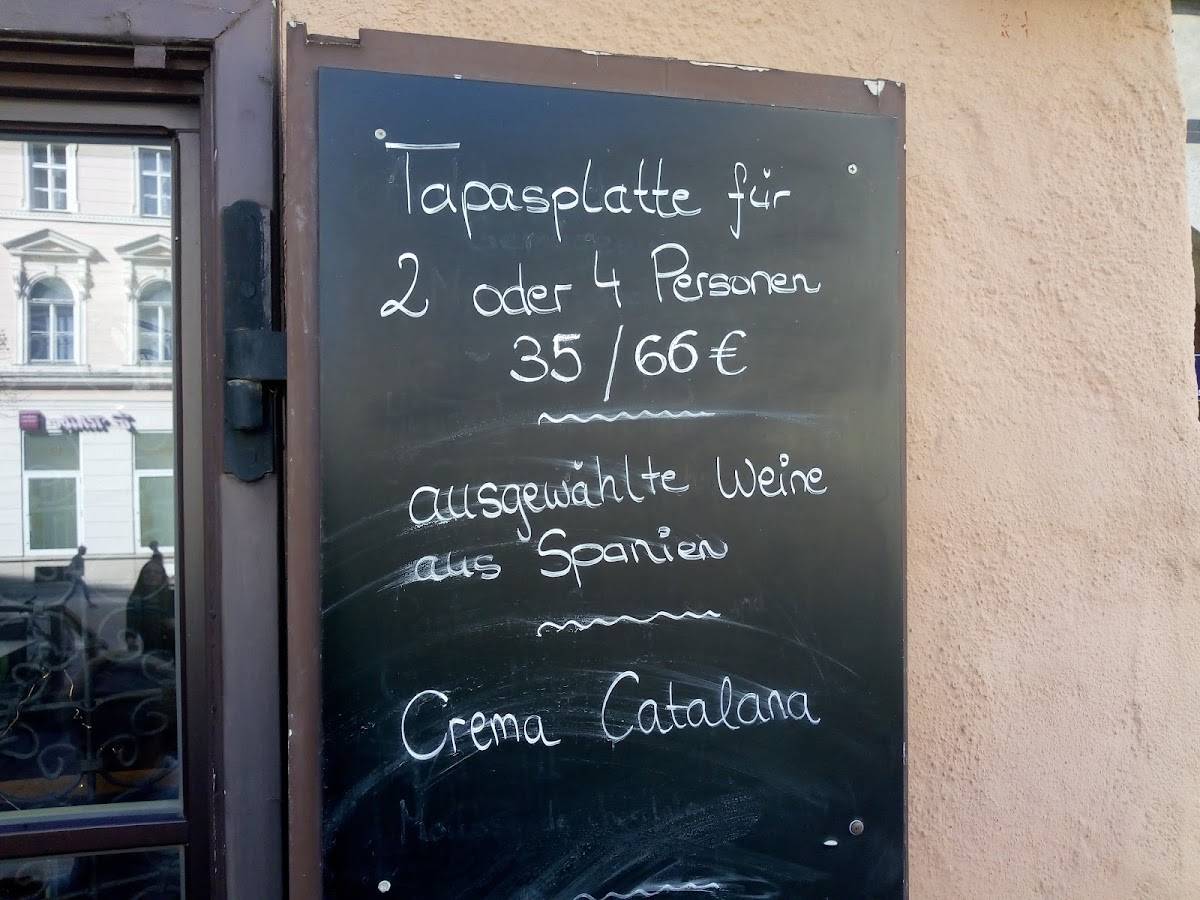 Tapasplatte für
2 oder 4 Personen
35/66€
ausgewählte Weine
aus Spanien
Crema Catalana